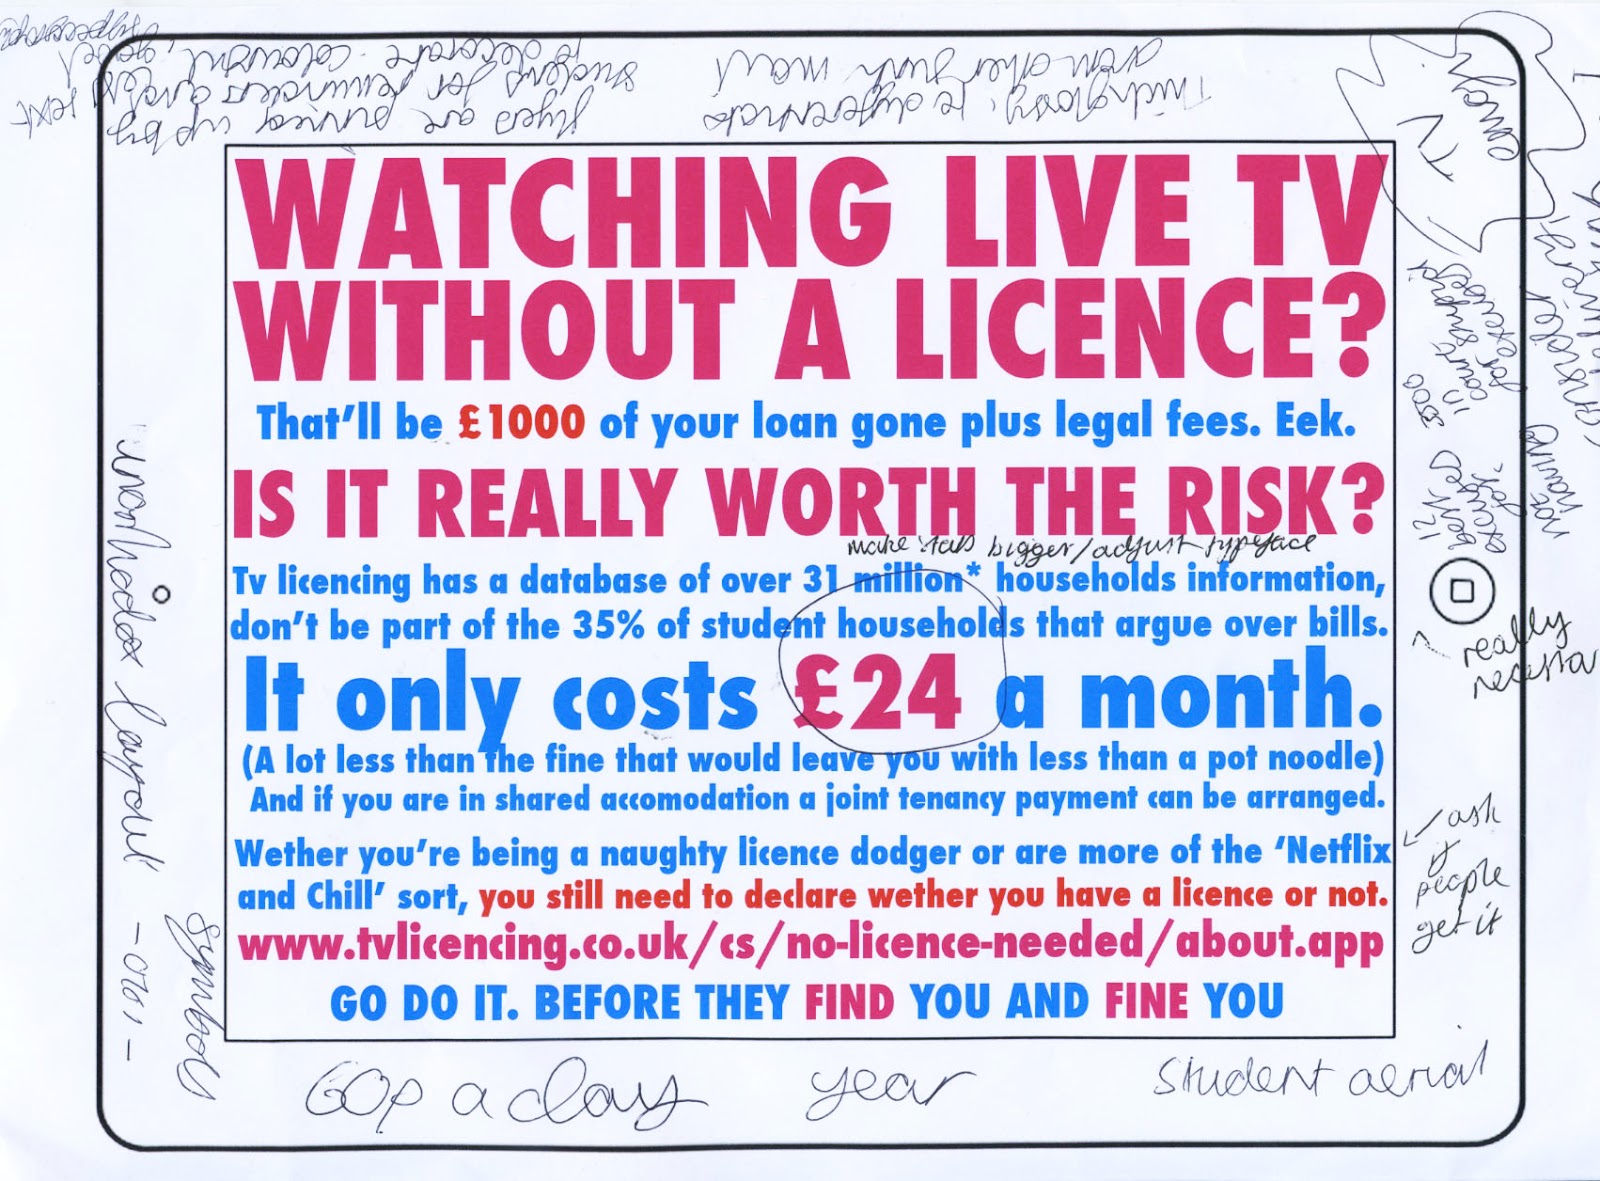 WATCHING LIVE TV
WITHOUT A LICENCE?
That'll be £1000 of your loan gone plus legal fees. Eek.
IS IT REALLY WORTH THE RISK?
make stats bigger/adjust typeface
Tv licencing has a database of over 31 million* households information,
don't be part of the 35% of student households that argue over bills.
It only costs £24 a month.
(A lot less than the fine that would leave you with less than a pot noodle)
And if you are in shared accomodation a joint tenancy payment can be arranged.
Wether you're being a naughty licence dodger or are more of the 'Netflix
and Chill' sort, you still need to declare wether you have a licence or not.
www.tvlicencing.co.uk/cs/no-licence-needed/about.app
GO DO IT. BEFORE THEY FIND YOU AND FINE YOU
60p a day
year
student aerial
symbols
layout
Thick glossy, to differentiate
from other junk mail
flyers are pinned up by
students for reminders and
to decorate. colourful, good
TV
12
best
excuses
for
not
having
3500
in
court
for excuses
really
ask
if
people
get it